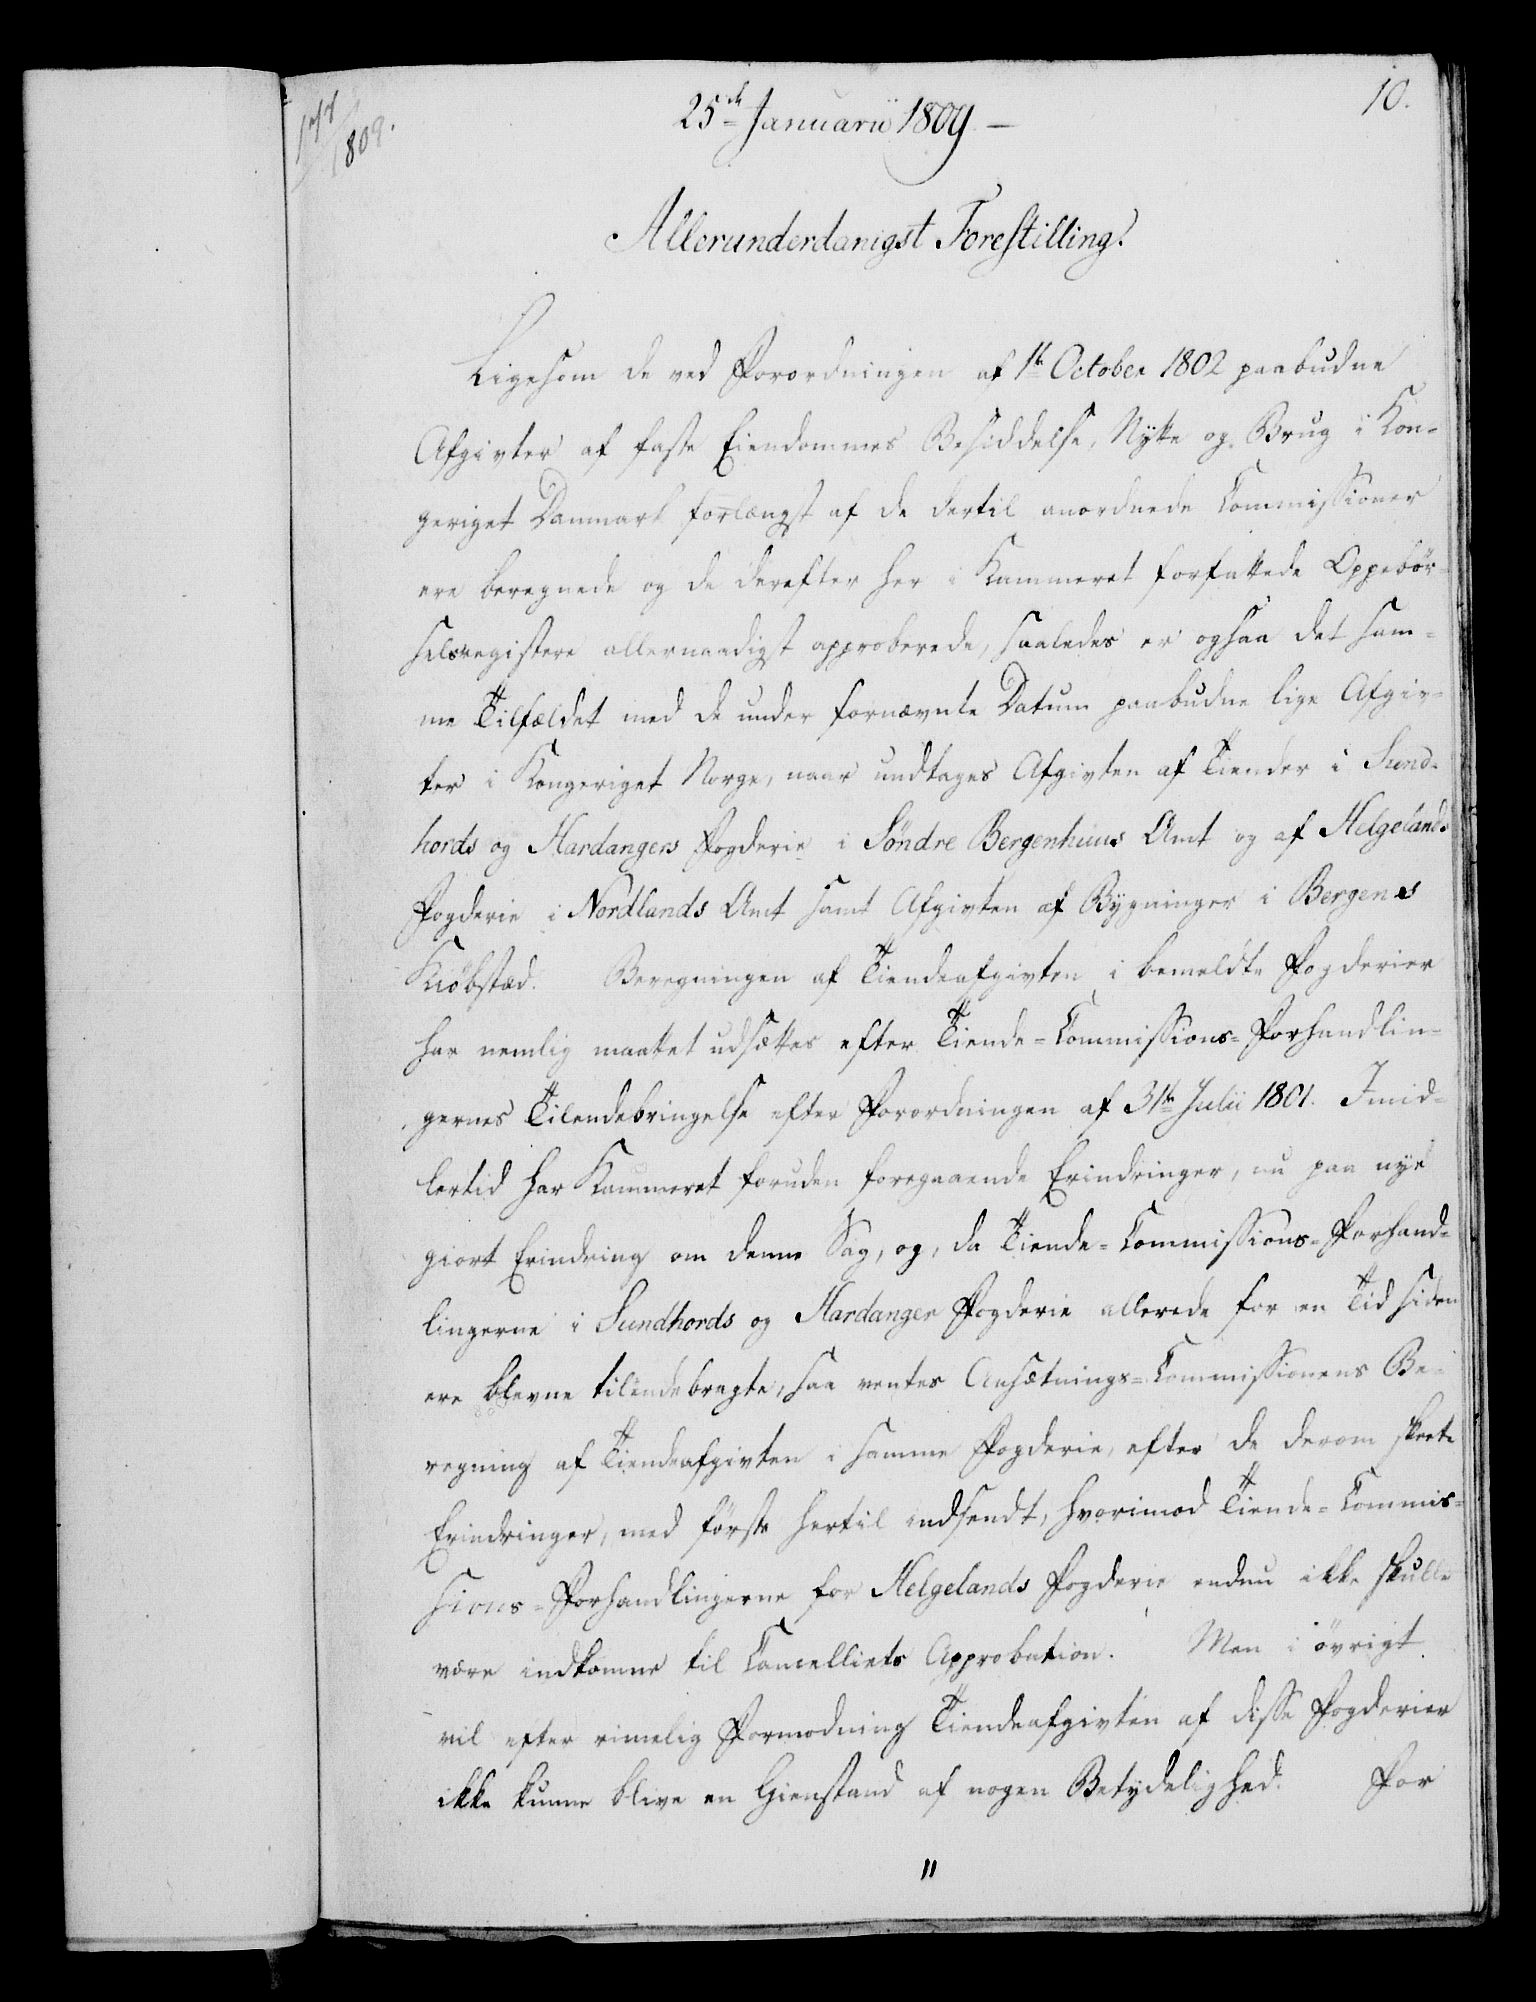 177/1809.
10.
25de Januarii 1809 —
Allerunderdanigst Forestilling!
Ligesom de ved Forordningen af 1te October 1802 paabudne
Afgivter af faste Eiendommes Besiddelse, Nytte og Brug i Kon-
geriget Danmark forlængst af de dertil anordnede Commissioner
ere beregnede og de derefter her i Kammeret forfattede Oppebör-
selsregistere allernaadigst approberede, saaledes er ogsaa det sam-
me Tilfældet med de under fornævnte Datum paabudne lige Afgiv-
ter i Kongeriget Norge, naar undtages Afgivten af Tiender i Sund-
hords og Hardangers Fogderie i Söndre Bergenhuus Amt og af Helgelands
Fogderie i Nordlands Amt samt Afgivten af Bygninger i Bergens
Kiöbstæd. Beregningen af Tiendeafgivten i bemeldte Fogderier
har nemlig maattet udsættes efter Tiende-Commissions-Forhandlin-
gernes Tilendebringelse efter Forordningen af 31te Julii 1801. Imid-
lertid har Kammeret foruden foregaaende Erindringer, nu paa nye
giort Erindring om denne Sag, og, da Tiende-Commissions-Forhand-
lingerne i Sundhords og Hardanger Fogderie allerede for en Tid siden
ere blevne tilendebragte, saa ventes Ansætnings-Commissionens Be-
regning af Tiendeafgivten i samme Fogderie, efter de derom skeete
Erindringer, med förste hertil indsendt, hvorimod Tiende-Commis-
sions-Forhandlingerne for Helgelands Fogderie endnu ikke skulle
være indkomne til Cancelliets Approbation. Men i övrigt
vil efter rimelig Formodning Tiendeafgivten af disse Fogderier
ikke kunne blive en Gienstand af nogen Betydelighed. For
"